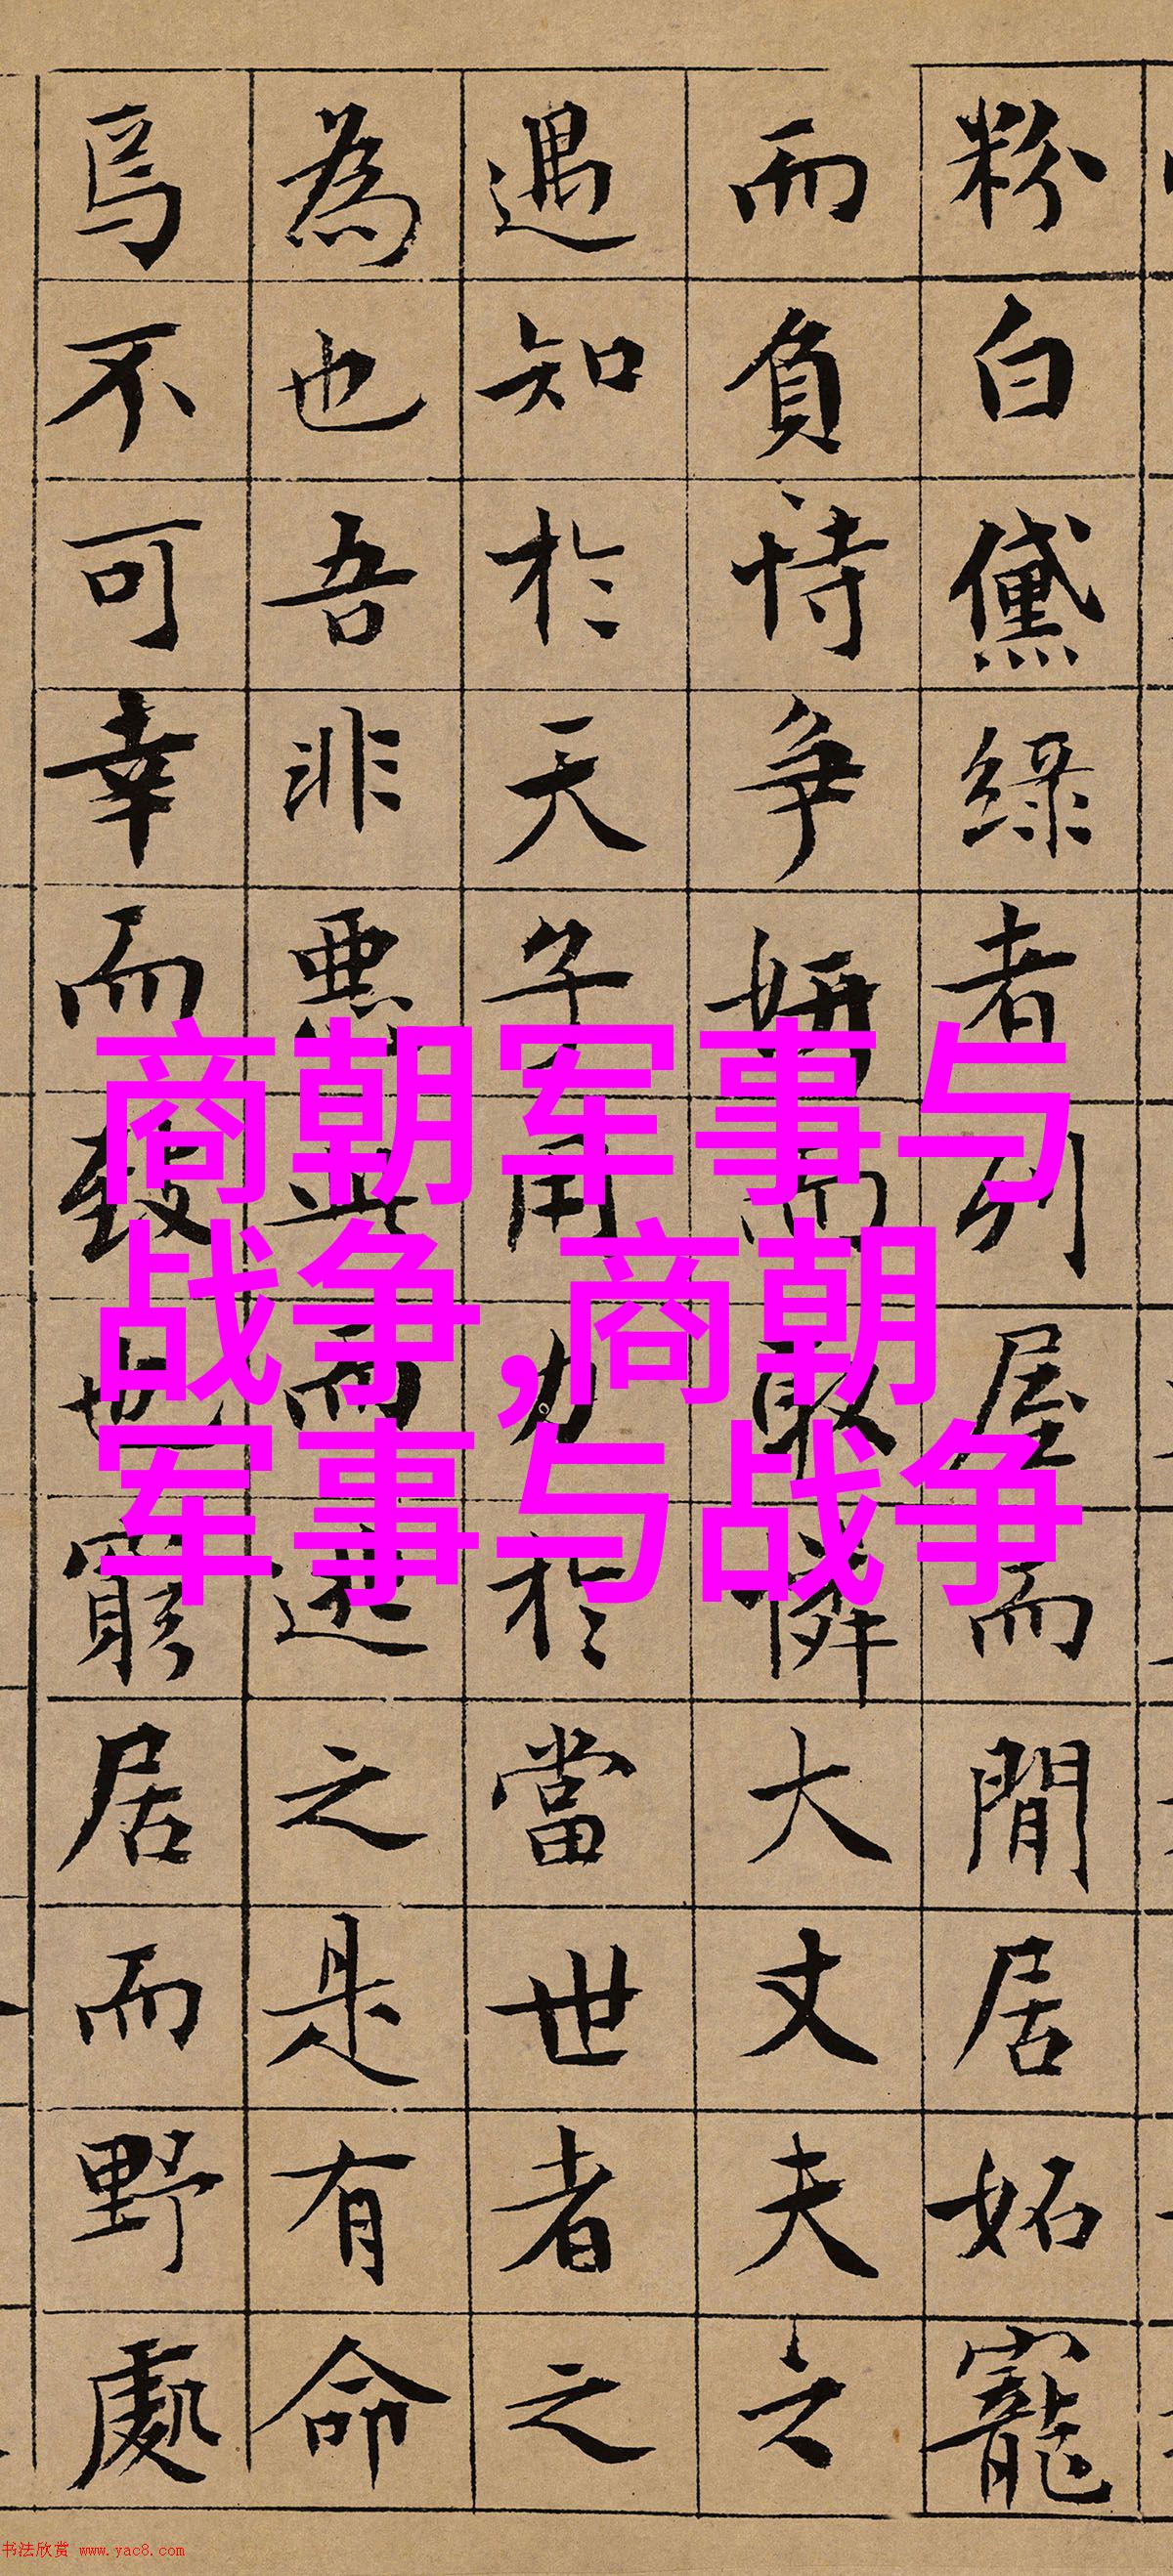 粉白黛綠者列屋而閒居妬寵
而負恃爭妍而取憐大丈夫之
遇知於天子用力於當世者之
為也吾非惡此而逃之是有命
焉不可幸而致也窮居而野處
商朝军事与
战争,商朝
军事与战争
书法欣赏 www.yac8.com